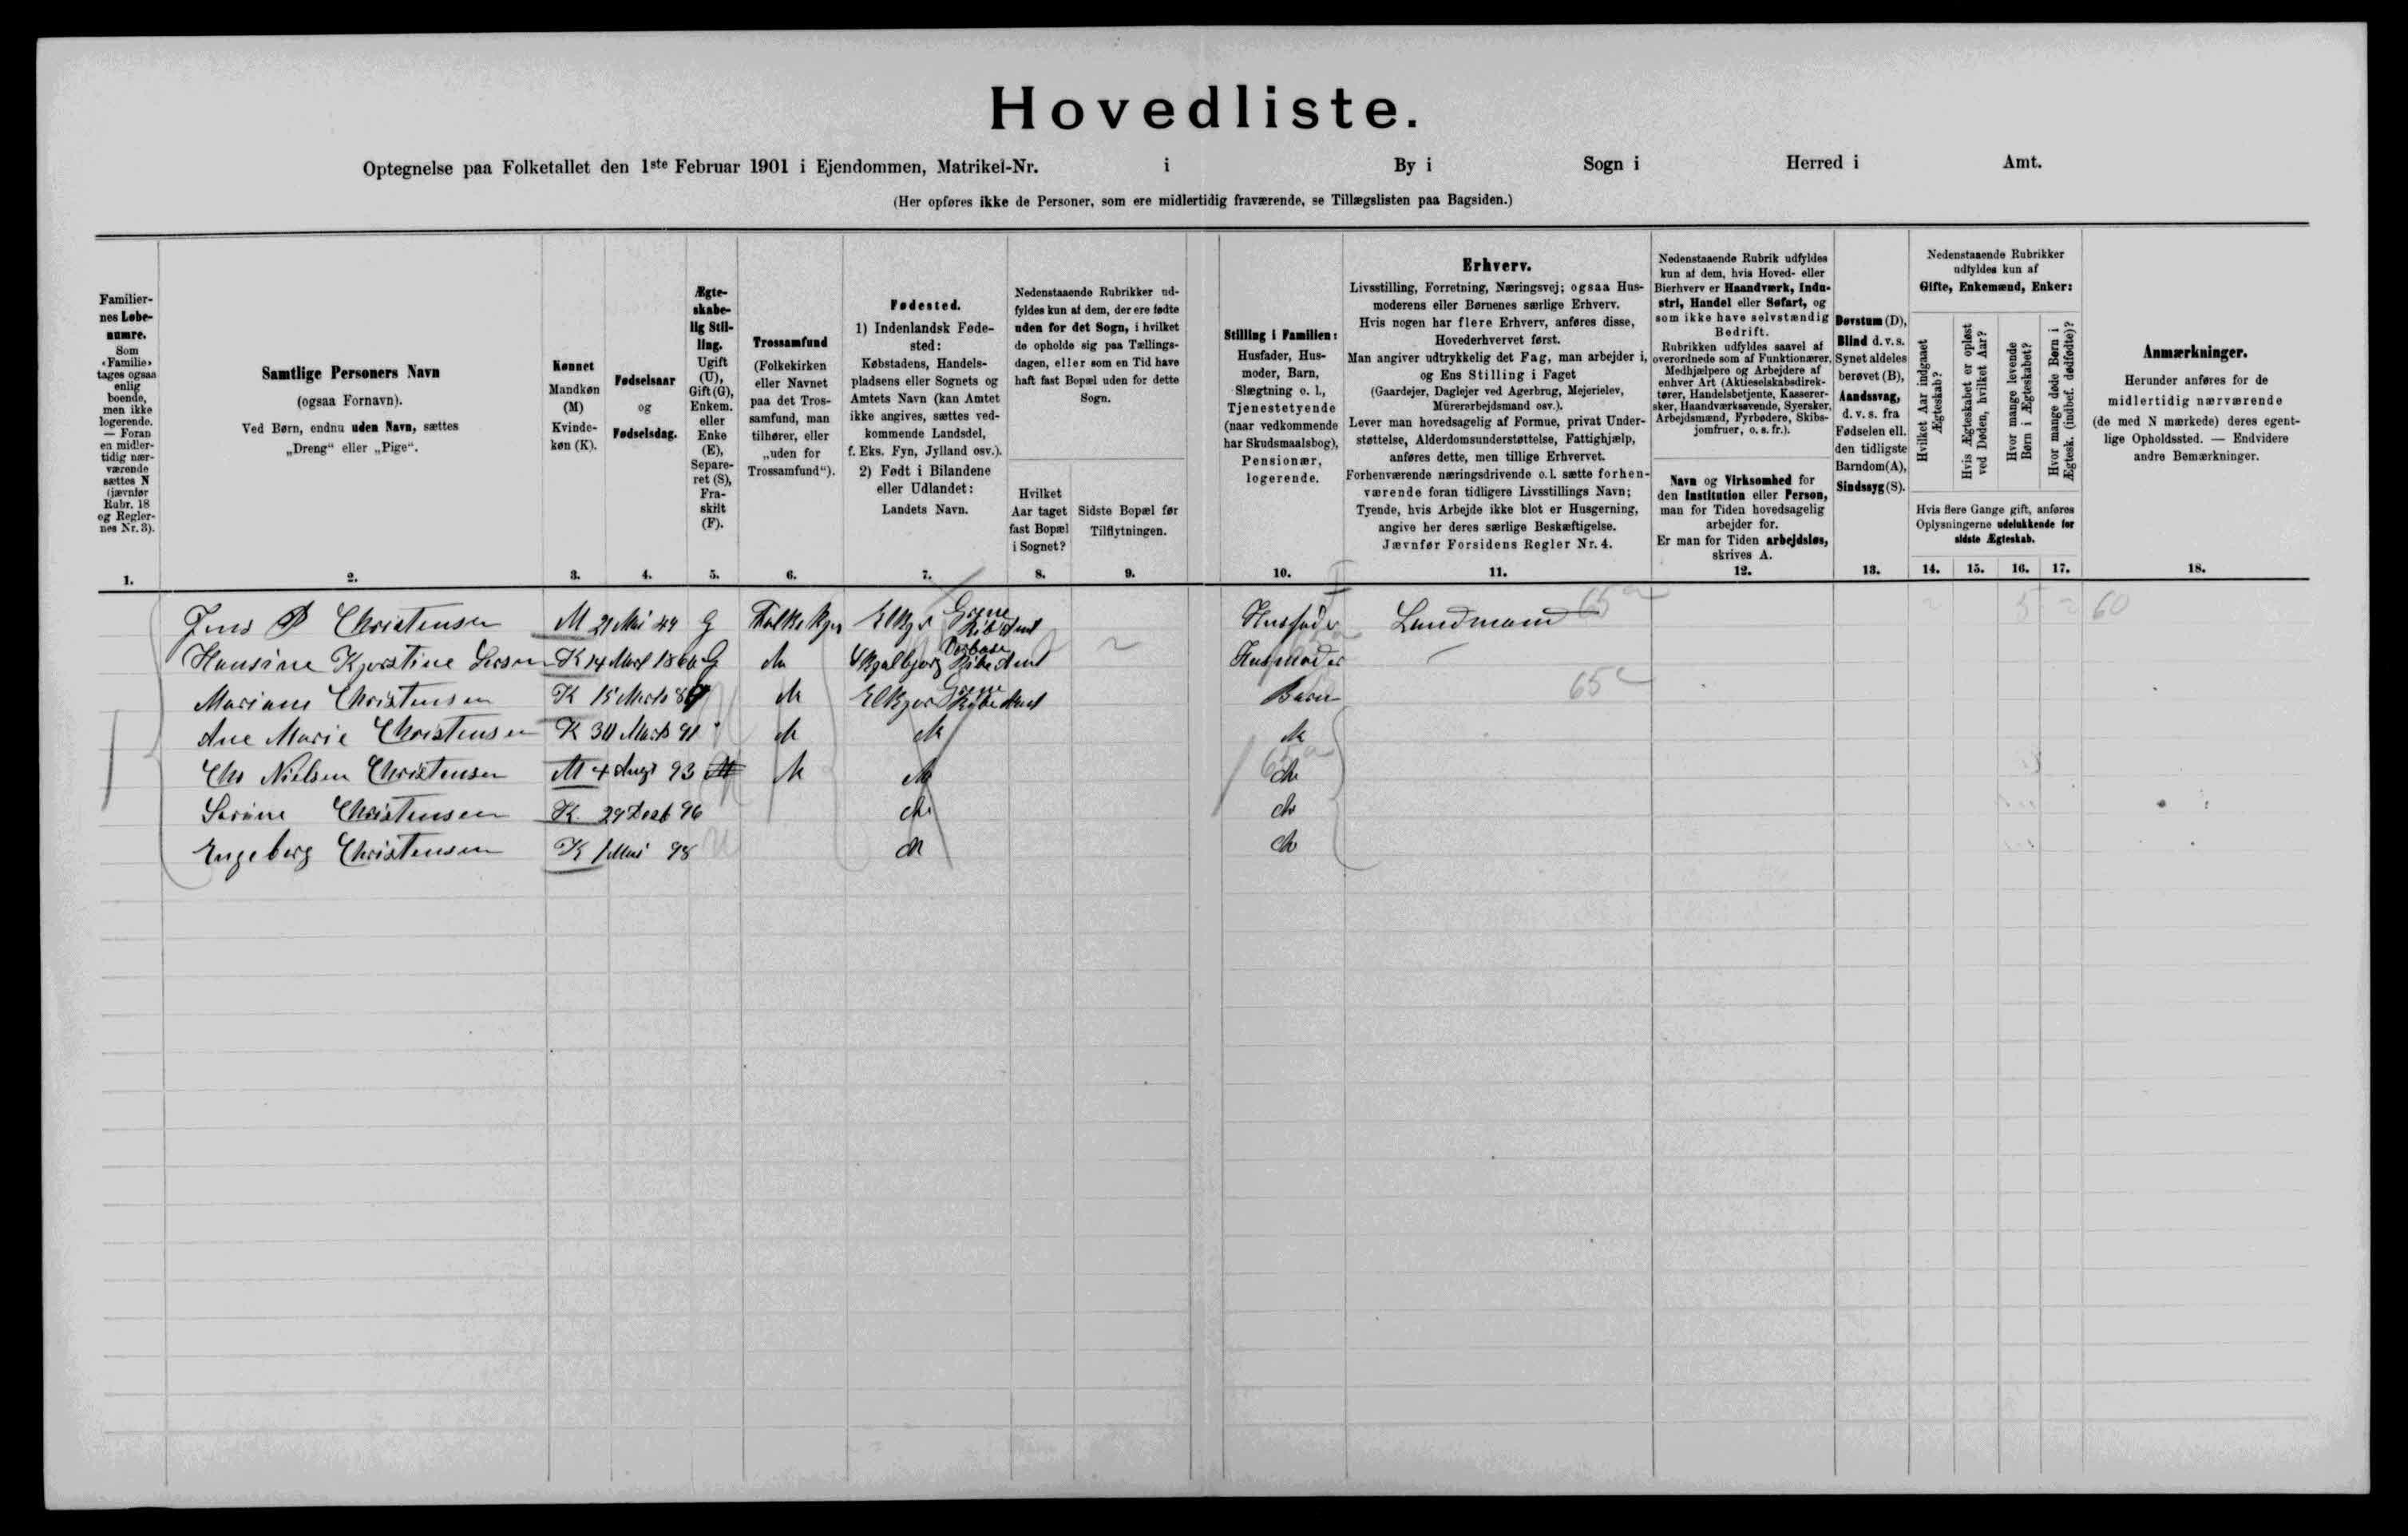 Hovedliste.
Optegnelse paa Folketallet den 1ste Februar 1901 i Ejendommen, Matrikel-Nr. i By i Sogn i Herred i Amt.
(Her opføres ikke de Personer, som ere midlertidig fraværende, se Tillægslisten paa Bagsiden.)
Familier-
nes Løbe-
numre.
Som
«Familie»
tages ogsaa
enlig
boende,
men ikke
logerende.
— Foran
en midler-
tidig nær-
værende
sættes N
(jævnfør
Rubr. 18
og Regler-
nes Nr. 3).
1.
Samtlige Personers Navn
(ogsaa Fornavn).
Ved Børn, endnu uden Navn, sættes
„Dreng“ eller „Pige“.
2.
Kønnet
Mandkøn
(M)
Kvinde-
køn (K).
3.
Fødselsaar
og
Fødselsdag.
4.
Ægte-
skabe-
lig Stil-
ling.
Ugift
(U),
Gift (G),
Enkem.
eller
Enke
(E),
Separe-
ret (S),
Fra-
skilt
(F).
5.
Trossamfund
(Folkekirken
eller Navnet
paa det Tros-
samfund, man
tilhører, eller
„uden for
Trossamfund“).
6.
Fødested.
1) Indenlandsk Føde-
sted:
Købstadens, Handels-
pladsens eller Sognets og
Amtets Navn (kan Amtet
ikke angives, sættes ved-
kommende Landsdel,
f. Eks. Fyn, Jylland osv.).
2) Født i Bilandene
eller Udlandet:
Landets Navn.
7.
Nedenstaaende Rubrikker ud-
fyldes kun af dem, der ere fødte
uden for det Sogn, i hvilket
de opholde sig paa Tællings-
dagen, eller som en Tid have
haft fast Bopæl uden for dette
Sogn.
Hvilket
Aar taget
fast Bopæl
i Sognet?
8.
Sidste Bopæl før
Tilflytningen.
9.
Stilling i Familien:
Husfader, Hus-
moder, Barn,
Slægtning o. l.,
Tjenestetyende
(naar vedkommende
har Skudsmaalsbog),
Pensionær,
logerende.
10.
Erhverv.
Livsstilling, Forretning, Næringsvej; ogsaa Hus-
moderens eller Børnenes særlige Erhverv.
Hvis nogen har flere Erhverv, anføres disse,
Hovederhvervet først.
Man angiver udtrykkelig det Fag, man arbejder i,
og Ens Stilling i Faget
(Gaardejer, Daglejer ved Agerbrug, Mejerielev,
Murerarbejdsmand osv.).
Lever man hovedsagelig af Formue, privat Under-
støttelse, Alderdomsunderstøttelse, Fattighjælp,
anføres dette, men tillige Erhvervet.
Forhenværende næringsdrivende o. l. sætte forhen-
værende foran tidligere Livsstillings Navn;
Tyende, hvis Arbejde ikke blot er Husgerning,
angive her deres særlige Beskæftigelse.
Jævnfør Forsidens Regler Nr. 4.
11.
Nedenstaaende Rubrik udfyldes
kun af dem, hvis Hoved- eller
Bierhverv er Haandværk, Indu-
stri, Handel eller Søfart, og
som ikke have selvstændig
Bedrift.
Rubrikken udfyldes saavel af
overordnede som af Funktionærer,
Medhjælpere og Arbejdere af
enhver Art (Aktieselskabsdirek-
tører, Handelsbetjente, Kasserer-
sker, Haandværkssvende, Syersker,
Arbejdsmænd, Fyrbødere, Skibs-
jomfruer, o. s. fr.).
Navn og Virksomhed for
den Institution eller Person,
man for Tiden hovedsagelig
arbejder for.
Er man for Tiden arbejdsløs,
skrives A.
12.
Døvstum (D),
Blind d. v. s.
Synet aldeles
berøvet (B),
Aandssvag,
d. v. s. fra
Fødselen ell.
den tidligste
Barndom (A),
Sindssyg (S).
13.
Nedenstaaende Rubrikker
udfyldes kun af
Gifte, Enkemænd, Enker:
Hvilket Aar indgaaet
Ægteskab?
Hvis Ægteskabet er opløst
ved Døden, hvilket Aar?
Hvor mange levende
Børn i Ægteskabet?
Hvor mange døde Børn i
Ægtesk. (indbef. dødfødte)?
Hvis flere Gange gift, anføres
Oplysningerne udelukkende for
sidste Ægteskab.
14. 15. 16. 17.
Anmærkninger.
Herunder anføres for de
midlertidig nærværende
(de med N mærkede) deres egent-
lige Opholdssted. — Endvidere
andre Bemærkninger.
18.
Jens P Christensen M 21 Mai 44 G Folkekjer Elkjer Grene Ribe Amt Husfader Landmand 65 5 60
Hansine Kjerstine K 14 Mart G do Skjelbjerg Vorbase Ribe Amt Husmoder
Mariane Christensen K 15 Marts do Elkjer Grene Ribe Amt Barn 65
Ane Marie Christensen K 30 Marts 91 do do do
Chr Nielsen Christensen M 4 Augs 93 do do do
Sørine Christensen K 29 Decb 96 do do
Engeborg Christensen K 1 Mai 98 do do